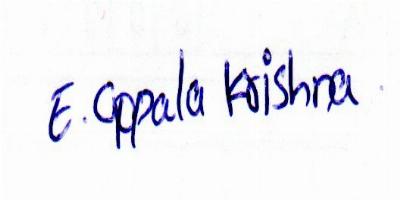 E. Appala Krishna.